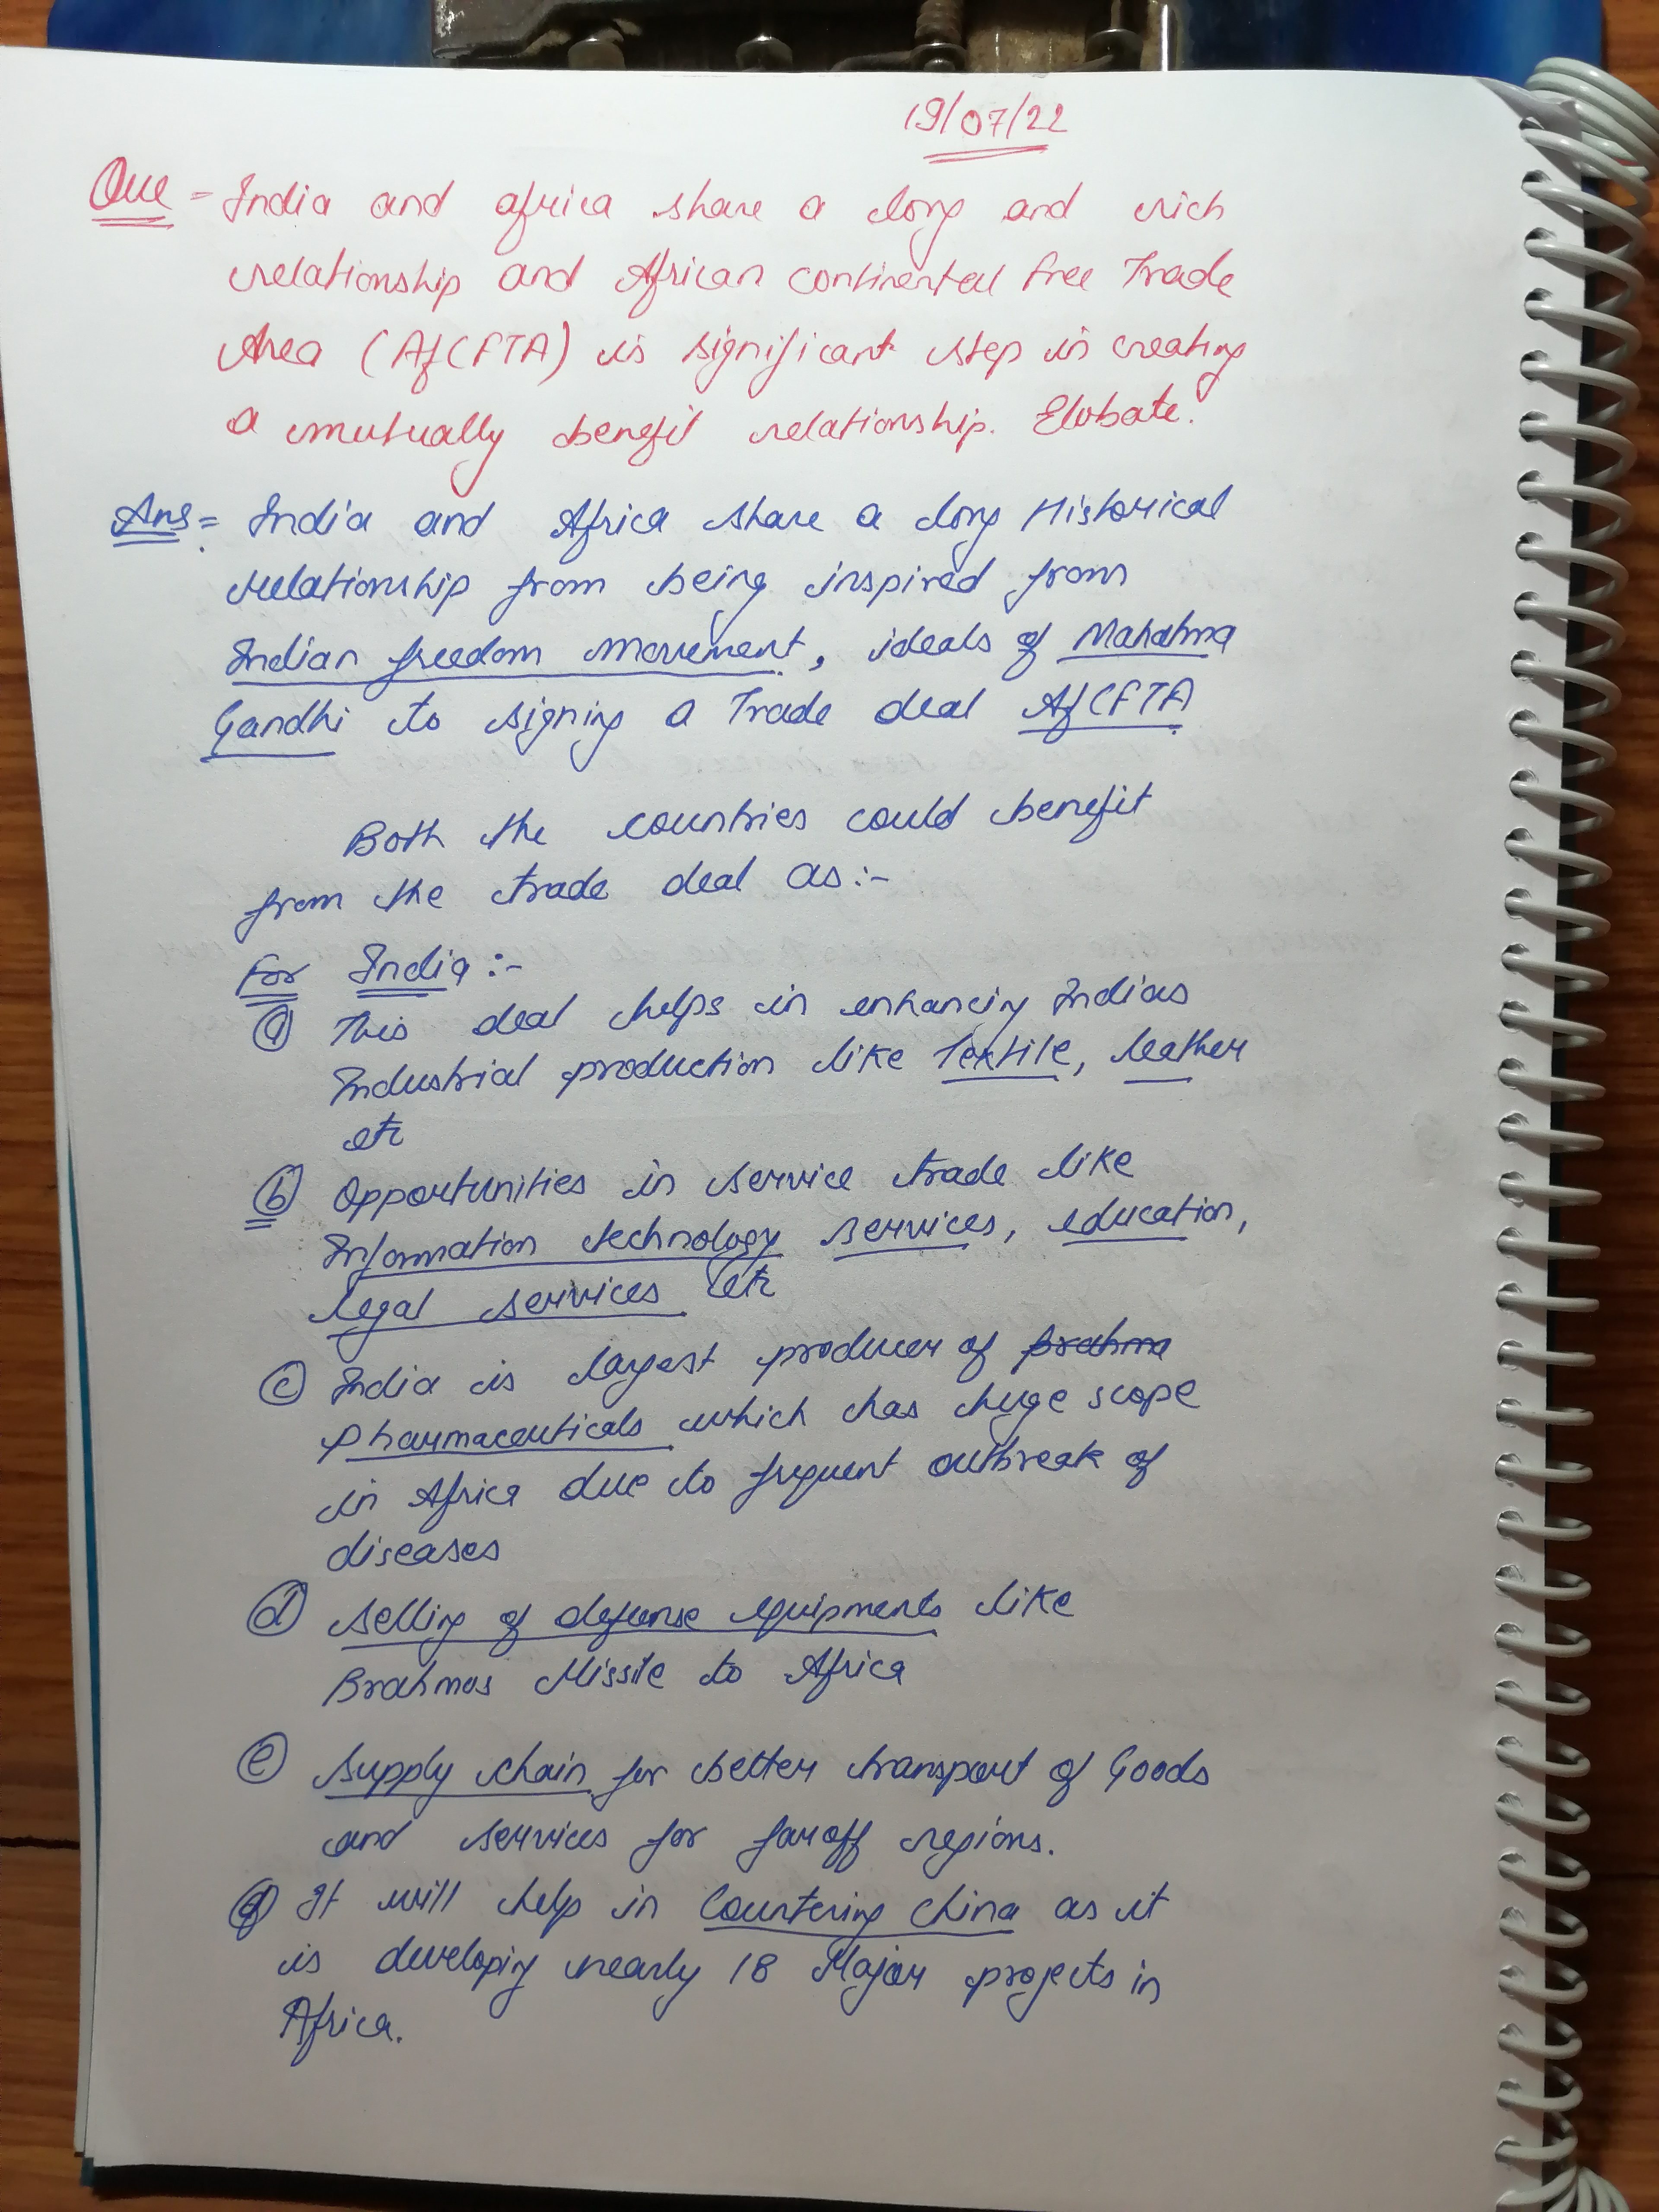 19/07/22
Que = India and africa share a long and rich
relationship and African continental free Trade
Area (AfCFTA) is significant step in creating
a mutually benefit relationship. Elobate.
Ans = India and Africa share a long Historical
relationship from being inspired from
Indian freedom movement, ideals of Mahatma
Gandhi to signing a Trade deal AfCFTA
Both the countries could benefit
from the trade deal as:-
For India :-
(a) This deal helps in enhancing Indias
Industrial production like Textile, leather
etc
(b) Opportunities in service trade like
Information technology services, education,
legal services etc
(c) India is largest producer of brahma
Pharmaceuticals which has huge scope
in Africa due to frequent outbreak of
diseases
(d) selling of defense equipments like
Brahmos Missile to Africa
(e) supply chain for better transport of Goods
and services for far off regions.
(f) It will help in Countering China as it
is developing nearly 18 Major projects in
Africa.